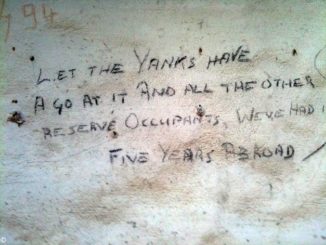 94
LET THE YANKS HAVE
A GO AT IT AND ALL THE OTHER
RESERVE OCCUPANTS, WEVE HAD
FIVE YEARS ABROAD